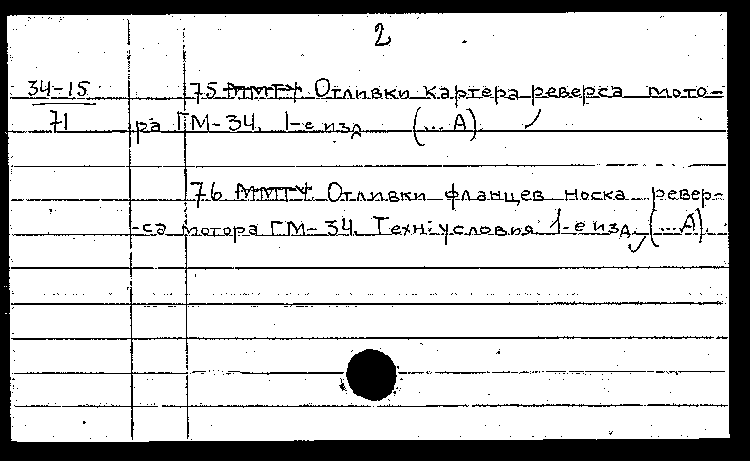 2
34-15 75 ММТУ Отливки картера реверса мото-
71 ра ГМ-34. 1-е изд (... А).
76 ММТУ Отливки фланцев носка ревер-
-са мотора ГМ-34. Техн: условия 1-е изд. (... А).